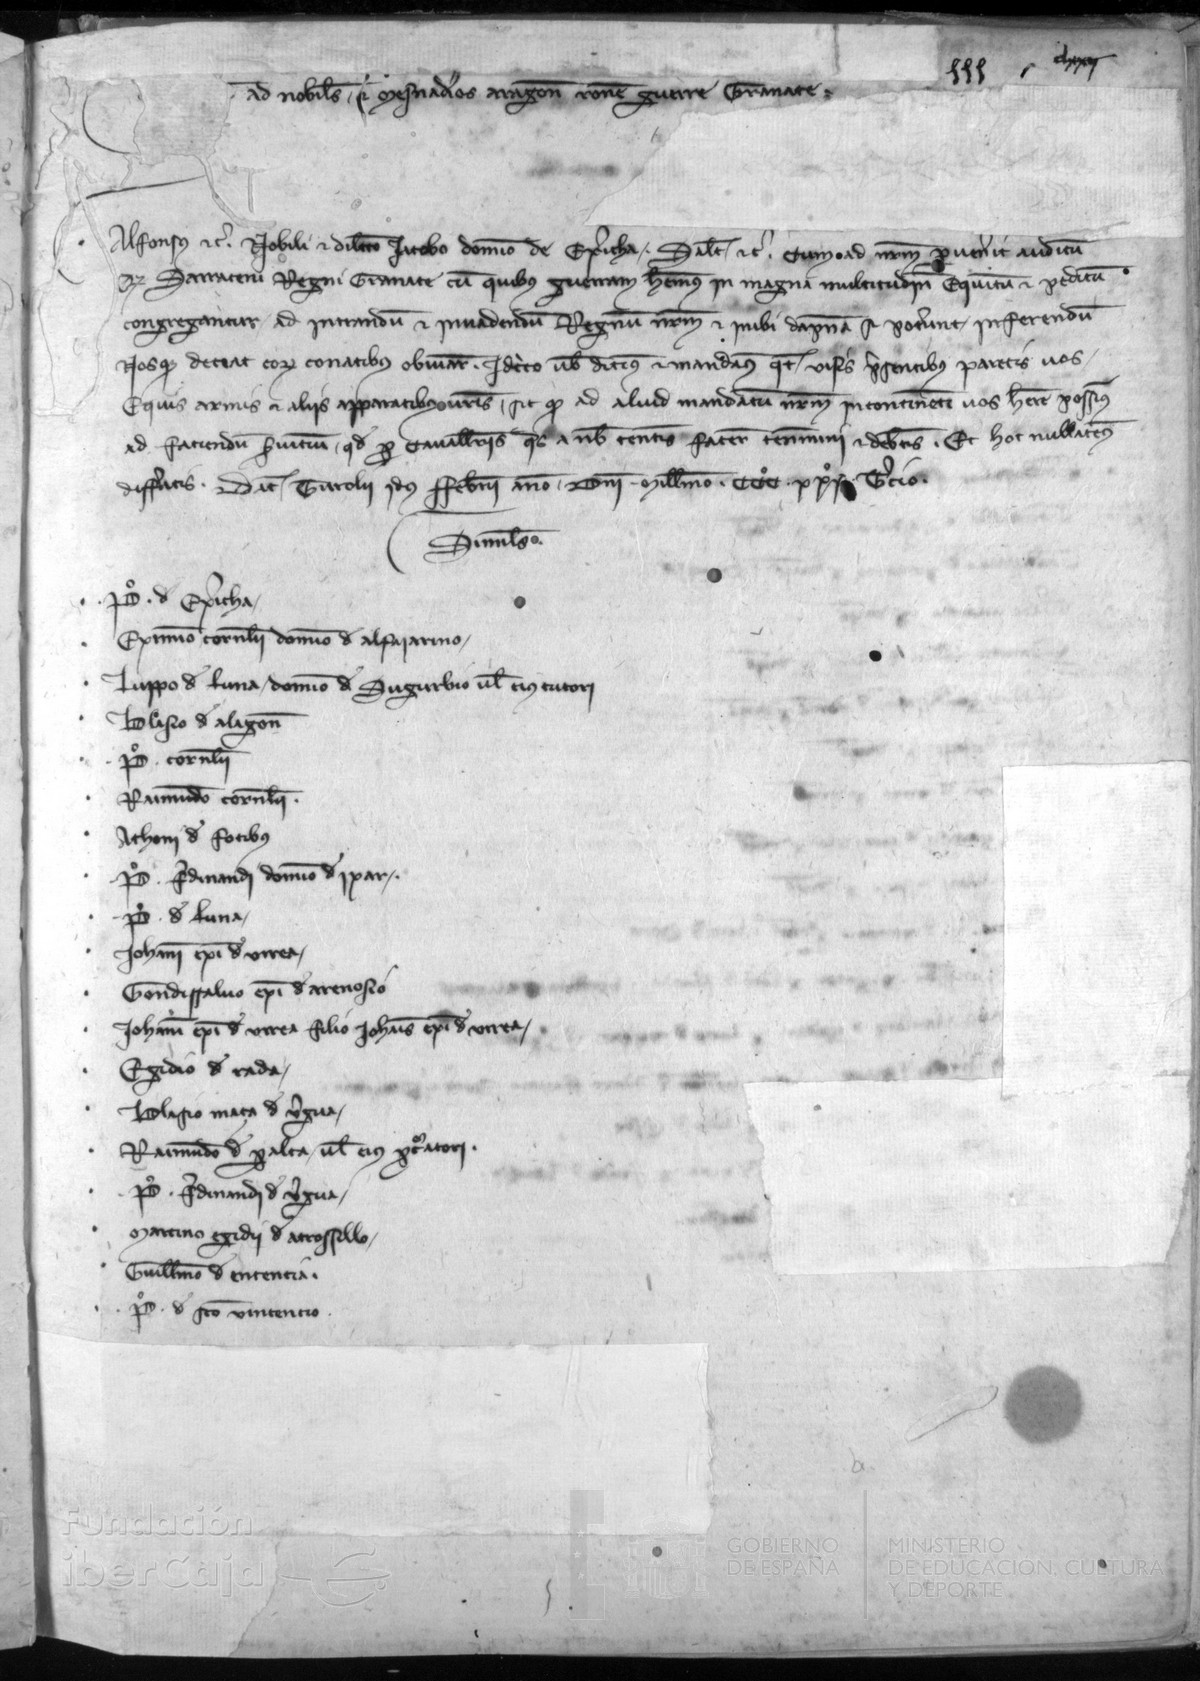 ad nobiles et Mesnadios aragon rone guerre Granate
Alfonsus etc. Nobili et dilecto Jacobo domino de Exericha. Salt etc. Cum ad nrm pervenerit auditu
qz Sarraceni Regni Granate cu quibus guerram hemus in magna multitudine Equitu et peditu
congregantur ad intrandu et invadendu Regnu nrm et inibi dapna si poterunt inferendu
Nosq deceat eorz conatibus obviare. Idcirco vob dicimus et mandamus qt visis psentibus paretis vos
Equis armis et aliis apparatibus vris sic q ad aliud mandatu nrm incontineti vos here possimus
ad faciendu servitiu qd p Cavallerijs qs a nob tenetis facere tenemini et debetis. Et hoc nullatenus
differatis. Dat Turolii Idus Febru anno Dni Millmo CCC xxx Tercio.
Similes
Po. de Exericha
Eximino cornelii domino de alfajarino
Luppo de luna domino de Sugurbio vel eius tutori
Blasio de alagon
Po. cornelii
Raimundo cornelii.
Athoni de focibus
Po. Ferdinandi domino de ixar.
Po. de luna
Johani exi de urrea
Gondissalvo exi de arenosio
Johani exi de urrea filio Johanis exi de urrea
Egidio de rada
Blasio maça de vergua
Raimundo de peralta vel eius pcuratori.
Po. Ferdinandi de vergua
Martino egidii de atrossillo
Guillmo de entencia.
Po. de sco vincencio.
Fundación
iberCaja
GOBIERNO
DE ESPAÑA
MINISTERIO
DE EDUCACIÓN, CULTURA
Y DEPORTE